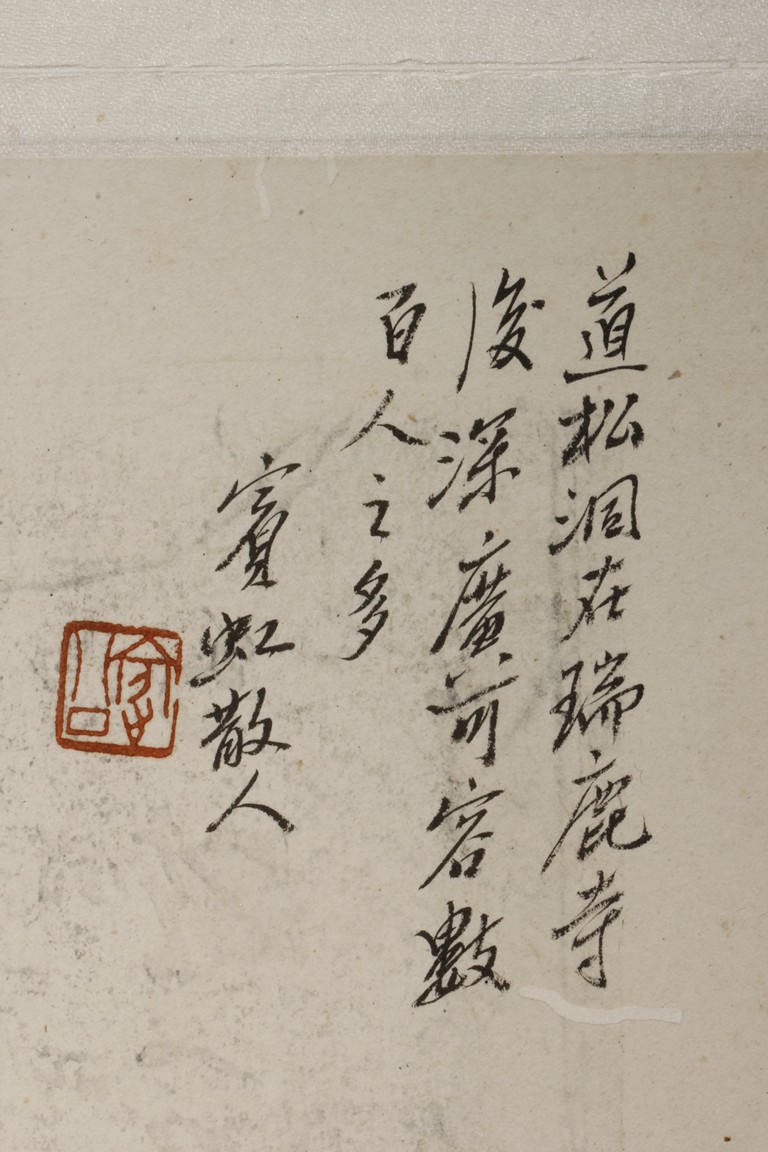 道松洞在瑞鹿寺
後深廣可容數
百人之多
賓虹散人